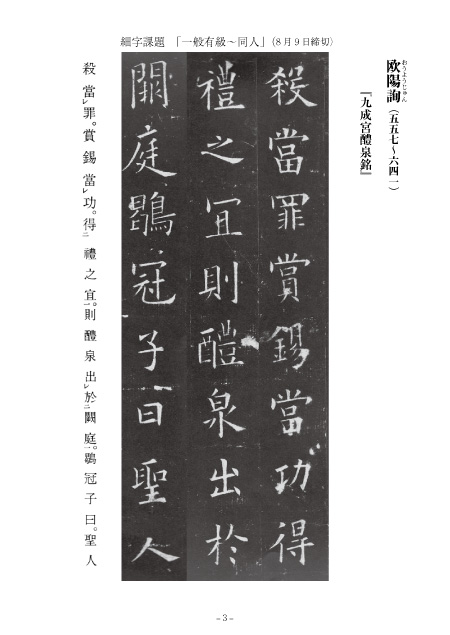 細字課題　「一般有級～同人」(８月９日締切)
欧陽詢（五五七～六四一）
おうようじゅん
『九成宮醴泉銘』
殺當罪賞錫當功得
禮之宜則醴泉出於
闕庭鶡冠子曰聖人
殺當㆑罪。賞錫當㆑功。得㆓禮之宜㆒。則醴泉出㆑於㆓闕庭㆒。鶡冠子曰。聖人
－3－